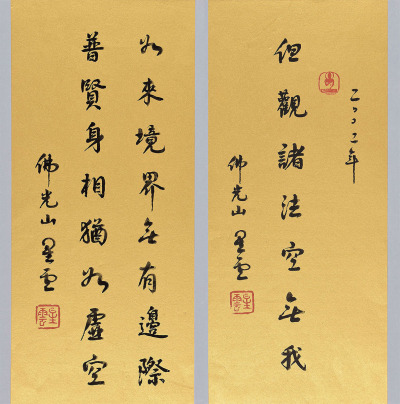 二〇〇二年
但觀諸法空無我
佛光山星雲
如來境界無有邊際
普賢身相猶如虛空
佛光山星雲